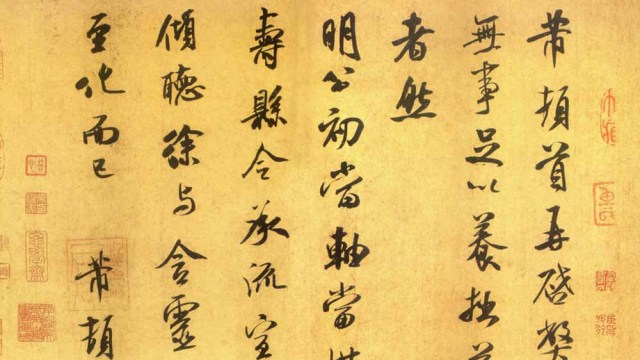 芾頓首再啓弊
無事足以養拙苟
者然
明公初當軸當措
壽縣令承流宣
傾聽徐与含靈
至化而已
芾頓